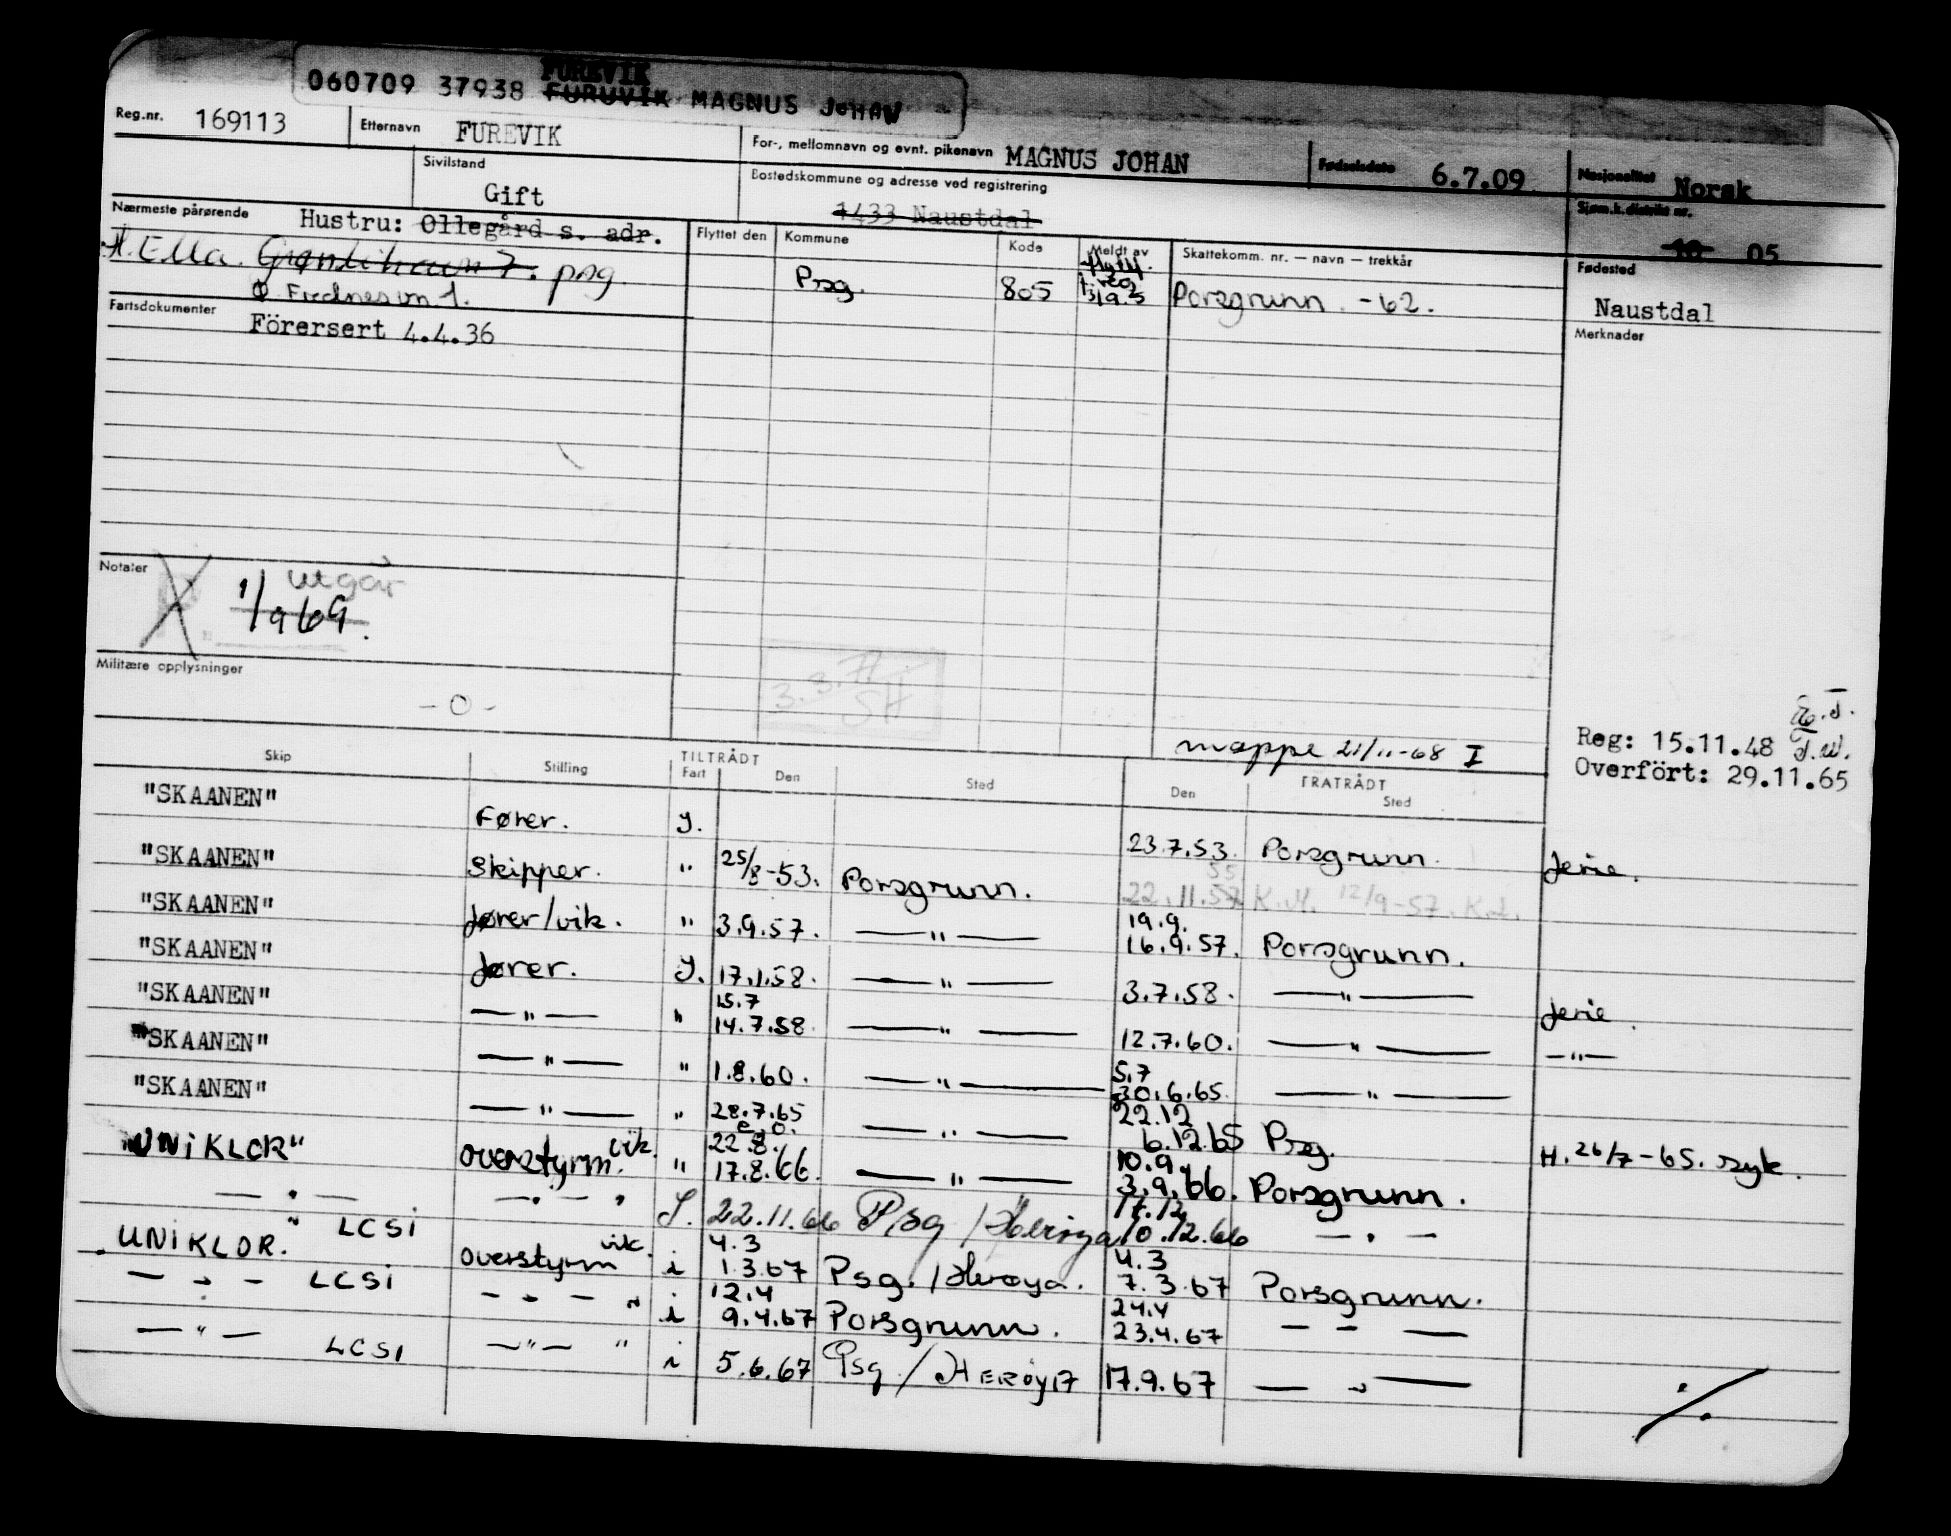 FUREVIK
060709 37938 FURUVIK MAGNUS JOHAN
Reg.nr. 169113 Etternavn FUREVIK For-, mellomnavn og evnt. pikenavn MAGNUS JOHAN Fødselsdato 6.7.09 Nasjonalitet Norsk
Sivilstand Gift Bostedskommune og adresse ved registrering 1433 Naustdal Sjøm.k.distrikt nr. 10 05
Nærmeste pårørende Hustru: Ollegård s. adr. Flyttet den Kommune Kode Meldt av Skattekomm. nr. — navn — trekkår Fødested
H. Ella. psg. Psg. 805 Porsgrunn. -62. Naustdal
Ø. Frednesvn 1.
Fartsdokumenter Förersert 4.4.36 Merknader
Notater utgår
1/9 69.
Militære opplysninger
-0-
3.3.71
SH
Reg: 15.11.48
mappe 21/11-68 I Overfört: 29.11.65
Skip Stilling TILTRÅDT Fart Den Sted FRATRÅDT Den Sted
"SKAANEN" Fører. 23.7.53. Porsgrunn. ferie.
"SKAANEN" Skipper. " 25/8-53. Porsgrunn. 22.11.57 K.M. 12/9-57.
55
"SKAANEN" fører/vik. " 3.9.57. —"— 19.9. 16.9.57. Porsgrunn.
"SKAANEN" fører. 17.1.58. —"— 3.7.58. —"— ferie.
"SKAANEN" —"— " 15.7 14.7.58. —"— 12.7.60. —"— —"—
"SKAANEN" —"— " 1.8.60. —"— 5.7 30.6.65. —"—
"SKAANEN" —"— " 28.7.65 e.o. —"— 22.12 6.12.65 Psg. H. 26/7-65. syk.
"UNIKLOR" overstyrm. vik. " 22.8. 17.8.66. —"— 10.9. 3.9.66. Porsgrunn.
—"— —"— " 22.11.66 Psg/Herøya 17.12 10.12.66 —"—
UNIKLOR." LCSI overstyrm vik. i 4.3 1.3.67 Psg./Herøya. 4.3 7.3.67 Porsgrunn.
—"— LCSI —"— " i 12.4 9.4.67 Porsgrunn. 24.4 23.4.67 —"—
—"— LCSI —"— " i 5.6.67 Psg/HERØYA 17.9.67 —"— ./.